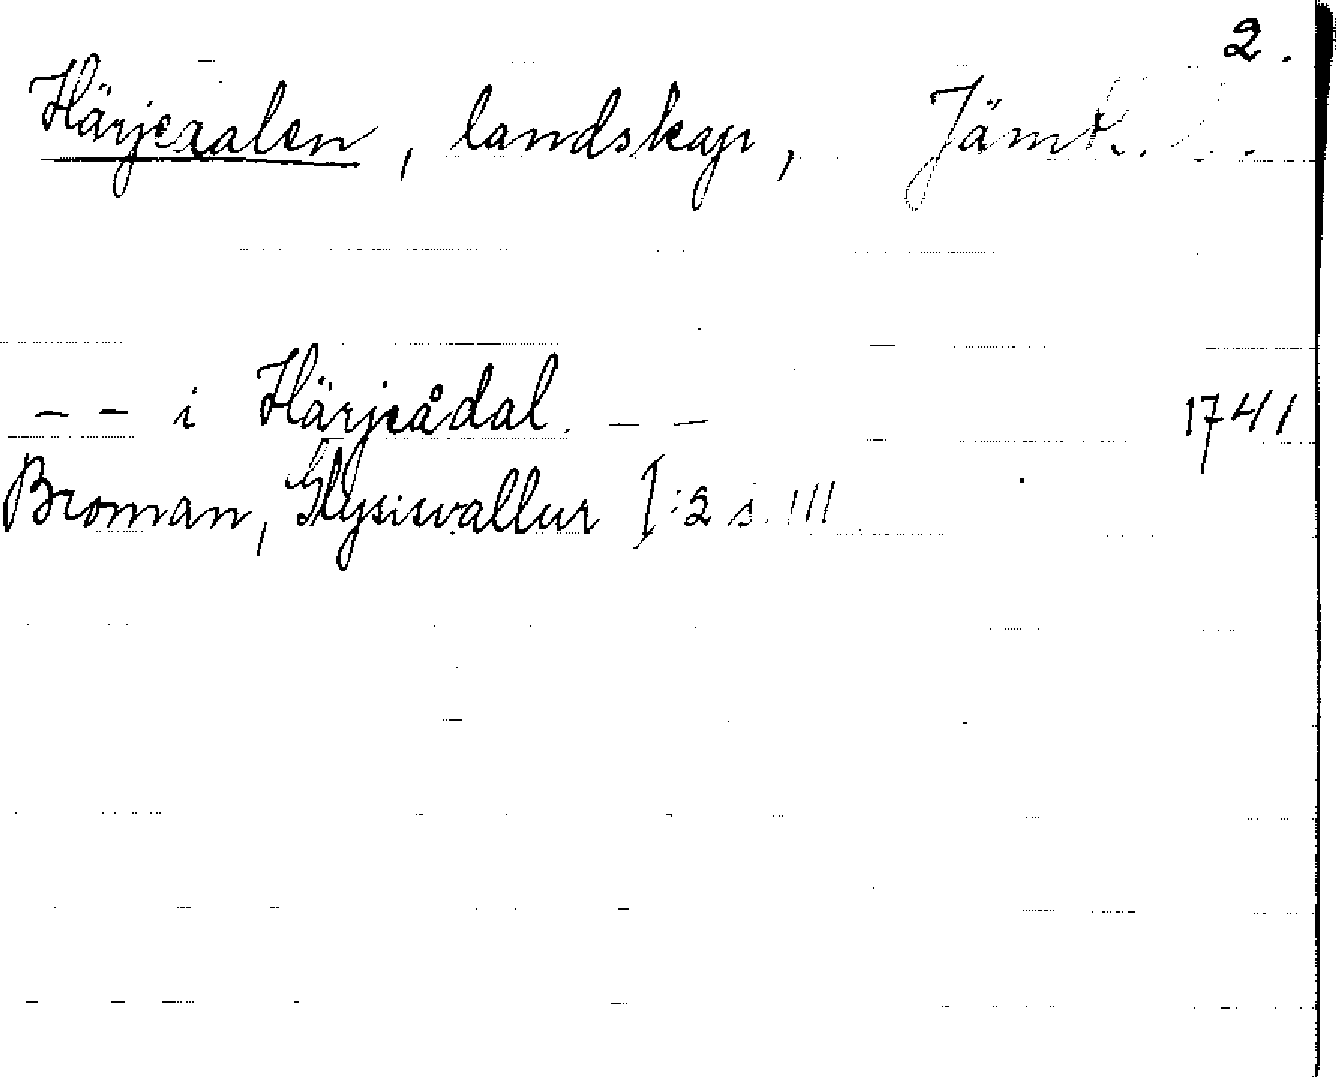 2.
Härjedalen, landskap, Jämtl. l.
– – i Härjeådal. – – 1741
Broman, Glysisvallur I:2 s. 111